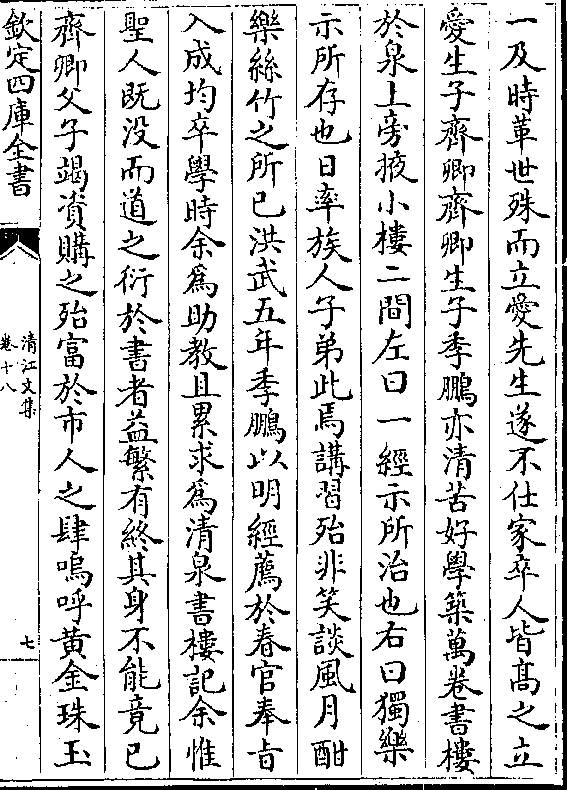 一及時革世殊而立愛先生遂不仕家卒人皆髙之立
愛生子齊卿齊卿生子季鵬亦清苦好學築萬卷書樓
於泉上旁掖小樓二間左曰一經示所治也右曰獨樂
示所存也日率族人子弟此焉講習殆非笑談風月酣
樂絲竹之所已洪武五年季鵬以明經薦於春官奉㫖
入成均卒學時余為助教且累求為清泉書樓記余惟
聖人既没而道之衍於書者益繁有終其身不能竟已
齊卿父子竭資購之殆富於市人之肆嗚呼黄金珠玉
欽定四庫全書
清江文集
卷十八
七